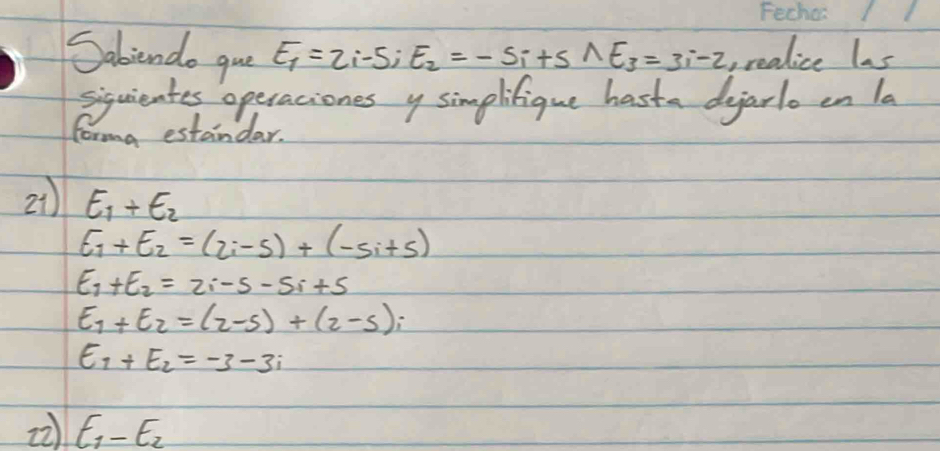 Fecha: / /
Sabiendo que E₁ = 2i-5; E₂ = -5i+5 ∧ E₃ = 3i-2, realice las
siguientes operaciones y simplifique hasta dejarlo en la
forma estándar.
21) E₁ + E₂
E₁ + E₂ = (2i-5) + (-5i+5)
E₁ + E₂ = 2i-5-5i+5
E₁ + E₂ = (2-5) + (2-5)i
E₁ + E₂ = -3-3i
22) E₁ - E₂